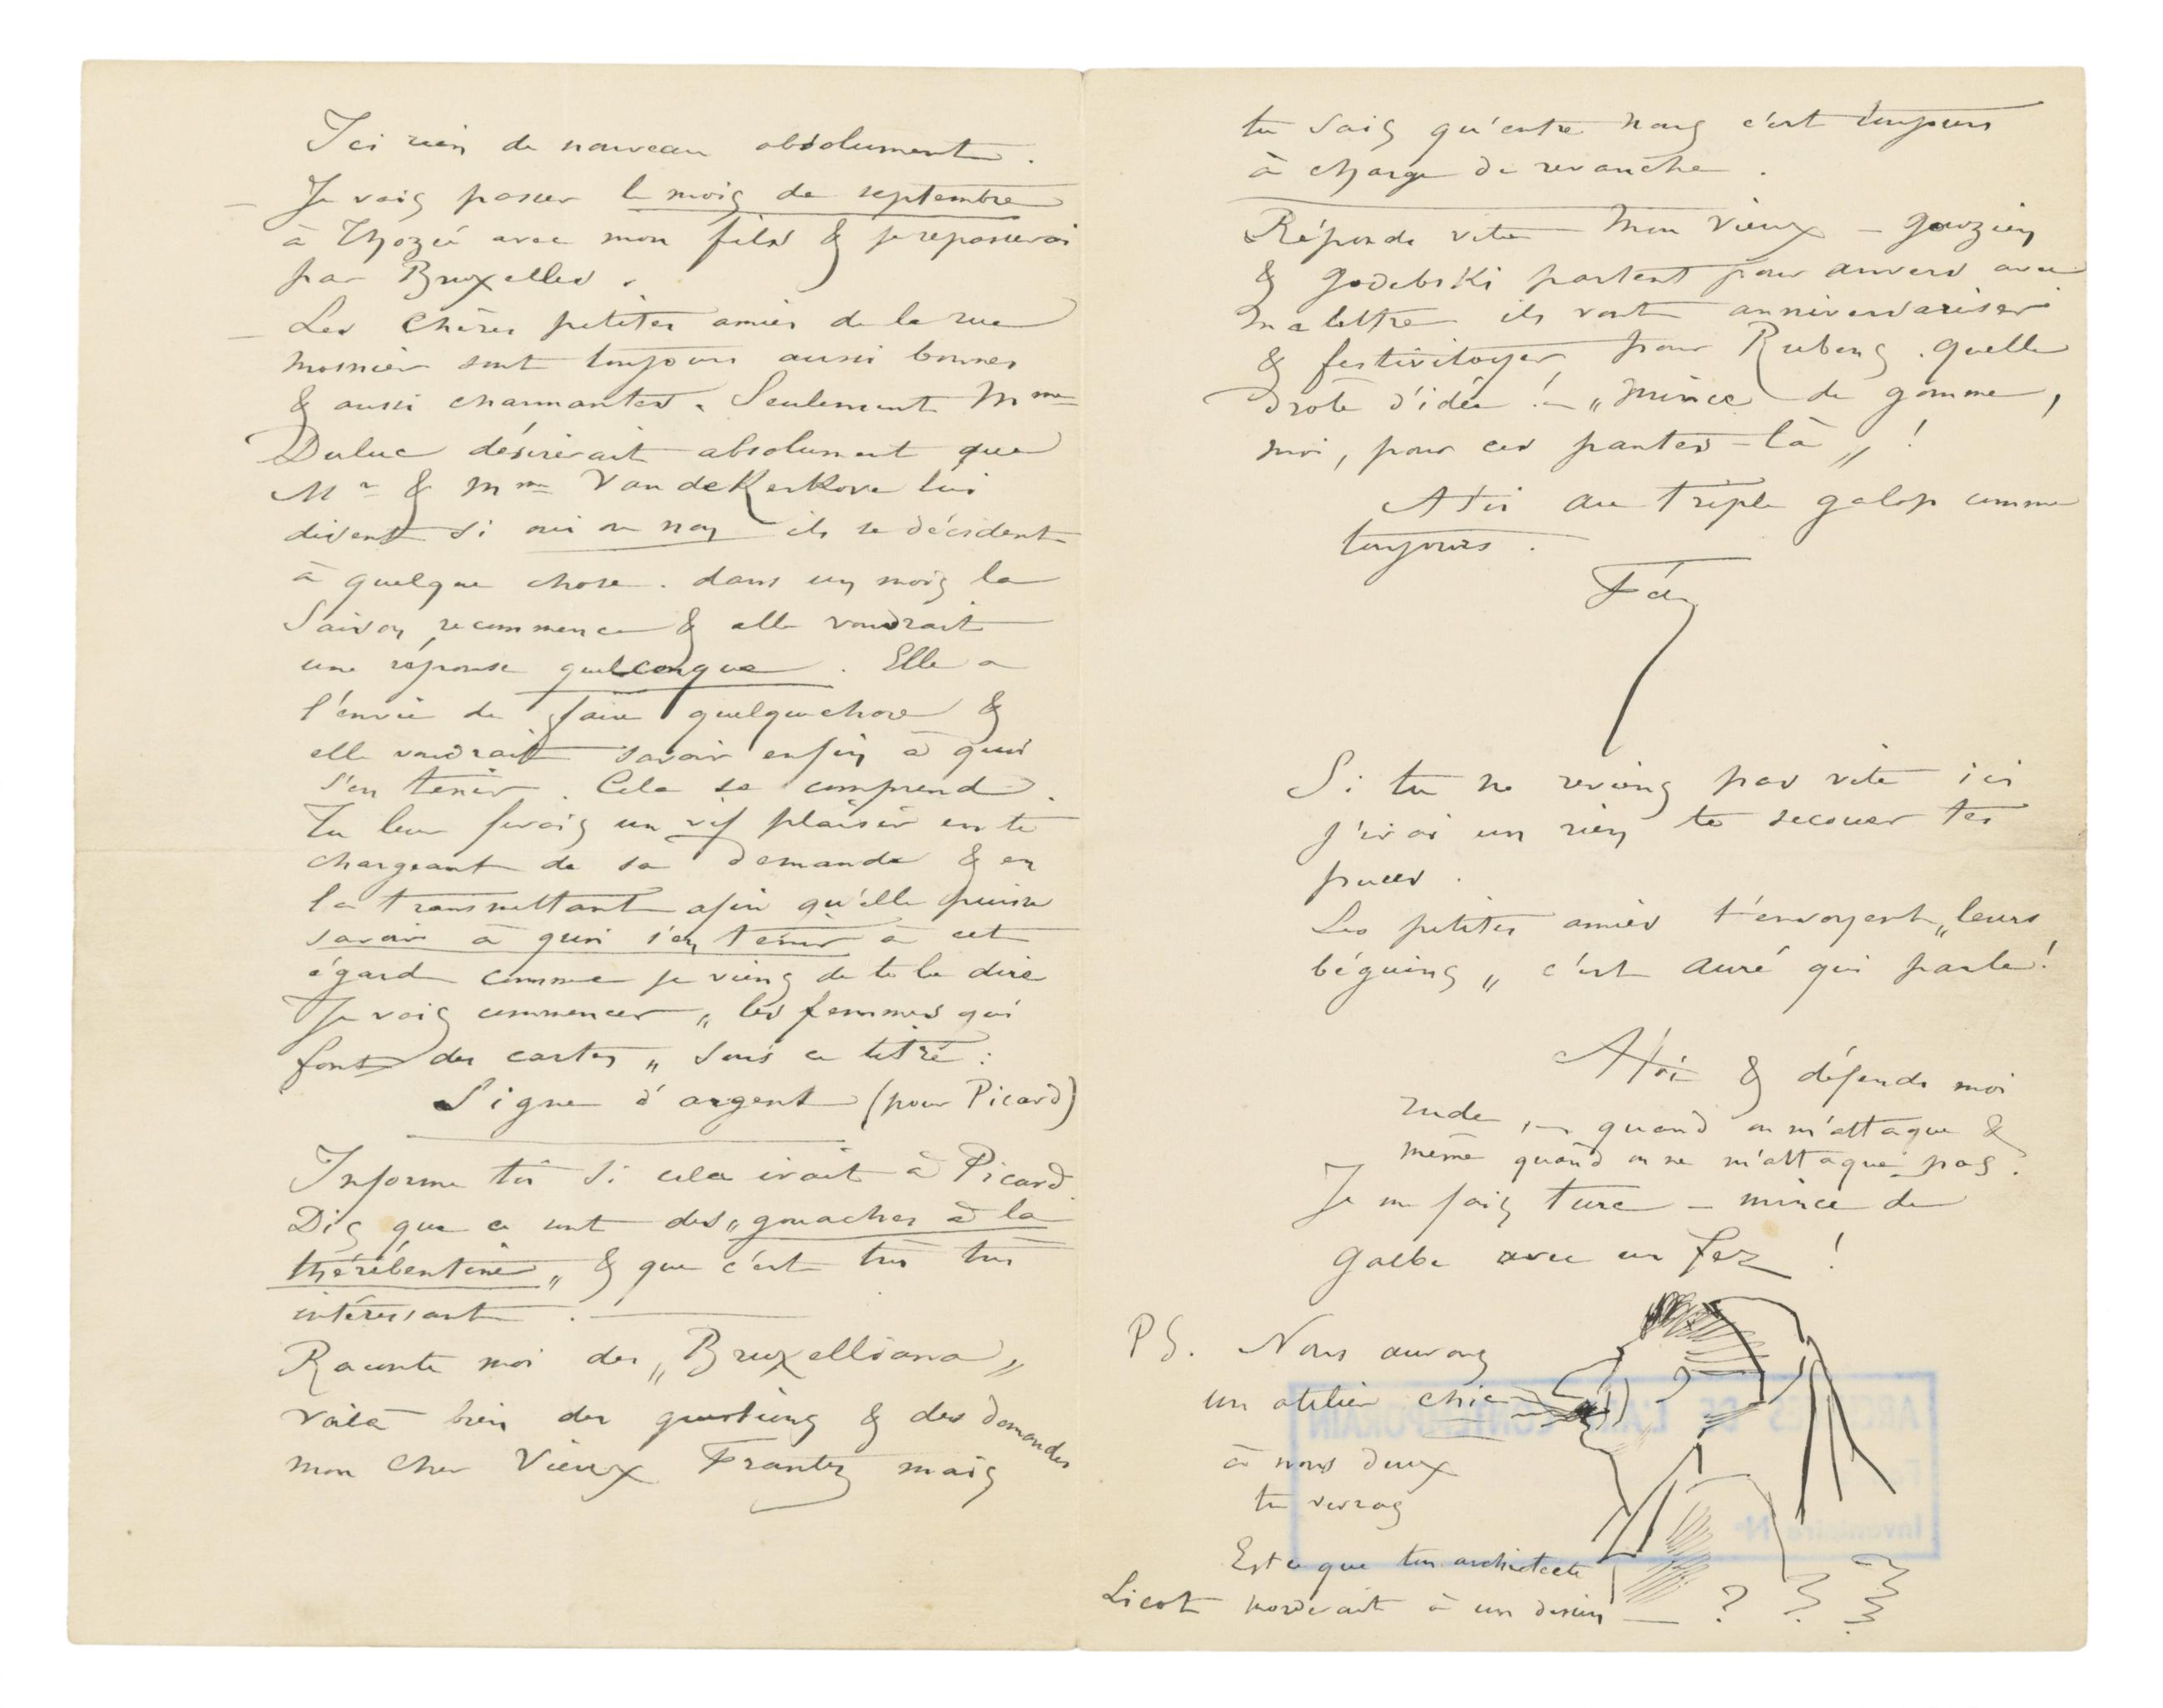 Ici rien de nouveau absolument.
— Je vais passer le mois de septembre
à Thozée avec mon fils & je repasserai
par Bruxelles.
— Les chères petites amies de la rue
Mosnier sont toujours aussi bonnes
& aussi charmantes. Seulement Mme
Duluc désirerait absolument que
Mr & Mme VandeKerkove lui
disent si oui ou non ils se décident
à quelque chose. dans un mois la
Saison recommence & elle voudrait
une réponse quelconque. Elle a
l'envie de faire quelquechose &
elle voudrait savoir enfin à quoi
s'en tenir. Cela se comprend.
Tu leur ferais un vif plaisir en te
chargeant de sa demande & en
la transmettant afin qu'elle puisse
savoir à quoi s'en tenir à cet
égard comme je viens de te le dire
Je vais commencer „les femmes qui
font des cartes„ sous ce titre:
Signe d'argent (pour Picard)
Informe toi si cela irait à Picard
Dis que ce sont des „gouaches à la
thérébentine„ & que c'est très très
intéressant. —
Raconte moi des „Bruxelliana„
Voilà bien des questions & des demandes
mon cher Vieux Frantz mais
tu sais qu'entre nous c'est toujours
à charge de revanche.
Réponds vite mon vieux — Gouzien
& Godebski partent pour Anvers avec
ma lettre ils vont anniversariser
& festivitoyer pour Rubens. quelle
drôle d'idée! — „Mince de gomme,
moi, pour ces pantes-là„!
A toi au triple galop comme
toujours.
Fély
Si tu ne reviens pas vite ici
j'irai un rien te secouer tes
puces.
Les petites amies t'envoyent „leurs
béguins„ c'est Auré qui parle!
A toi & défends moi
rude, — quand on m'attaque &
même quand on ne m'attaque pas.
Je me fais turc — mince de
galbe avec un fez!
PS. Nous aurons
un atelier chic
à nous deux
tu verras
Est ce que ton architecte
Licot morderait à un dessin — ? ? ?
ARCHIVES DE L'ART CONTEMPORAIN
Inventaire N°